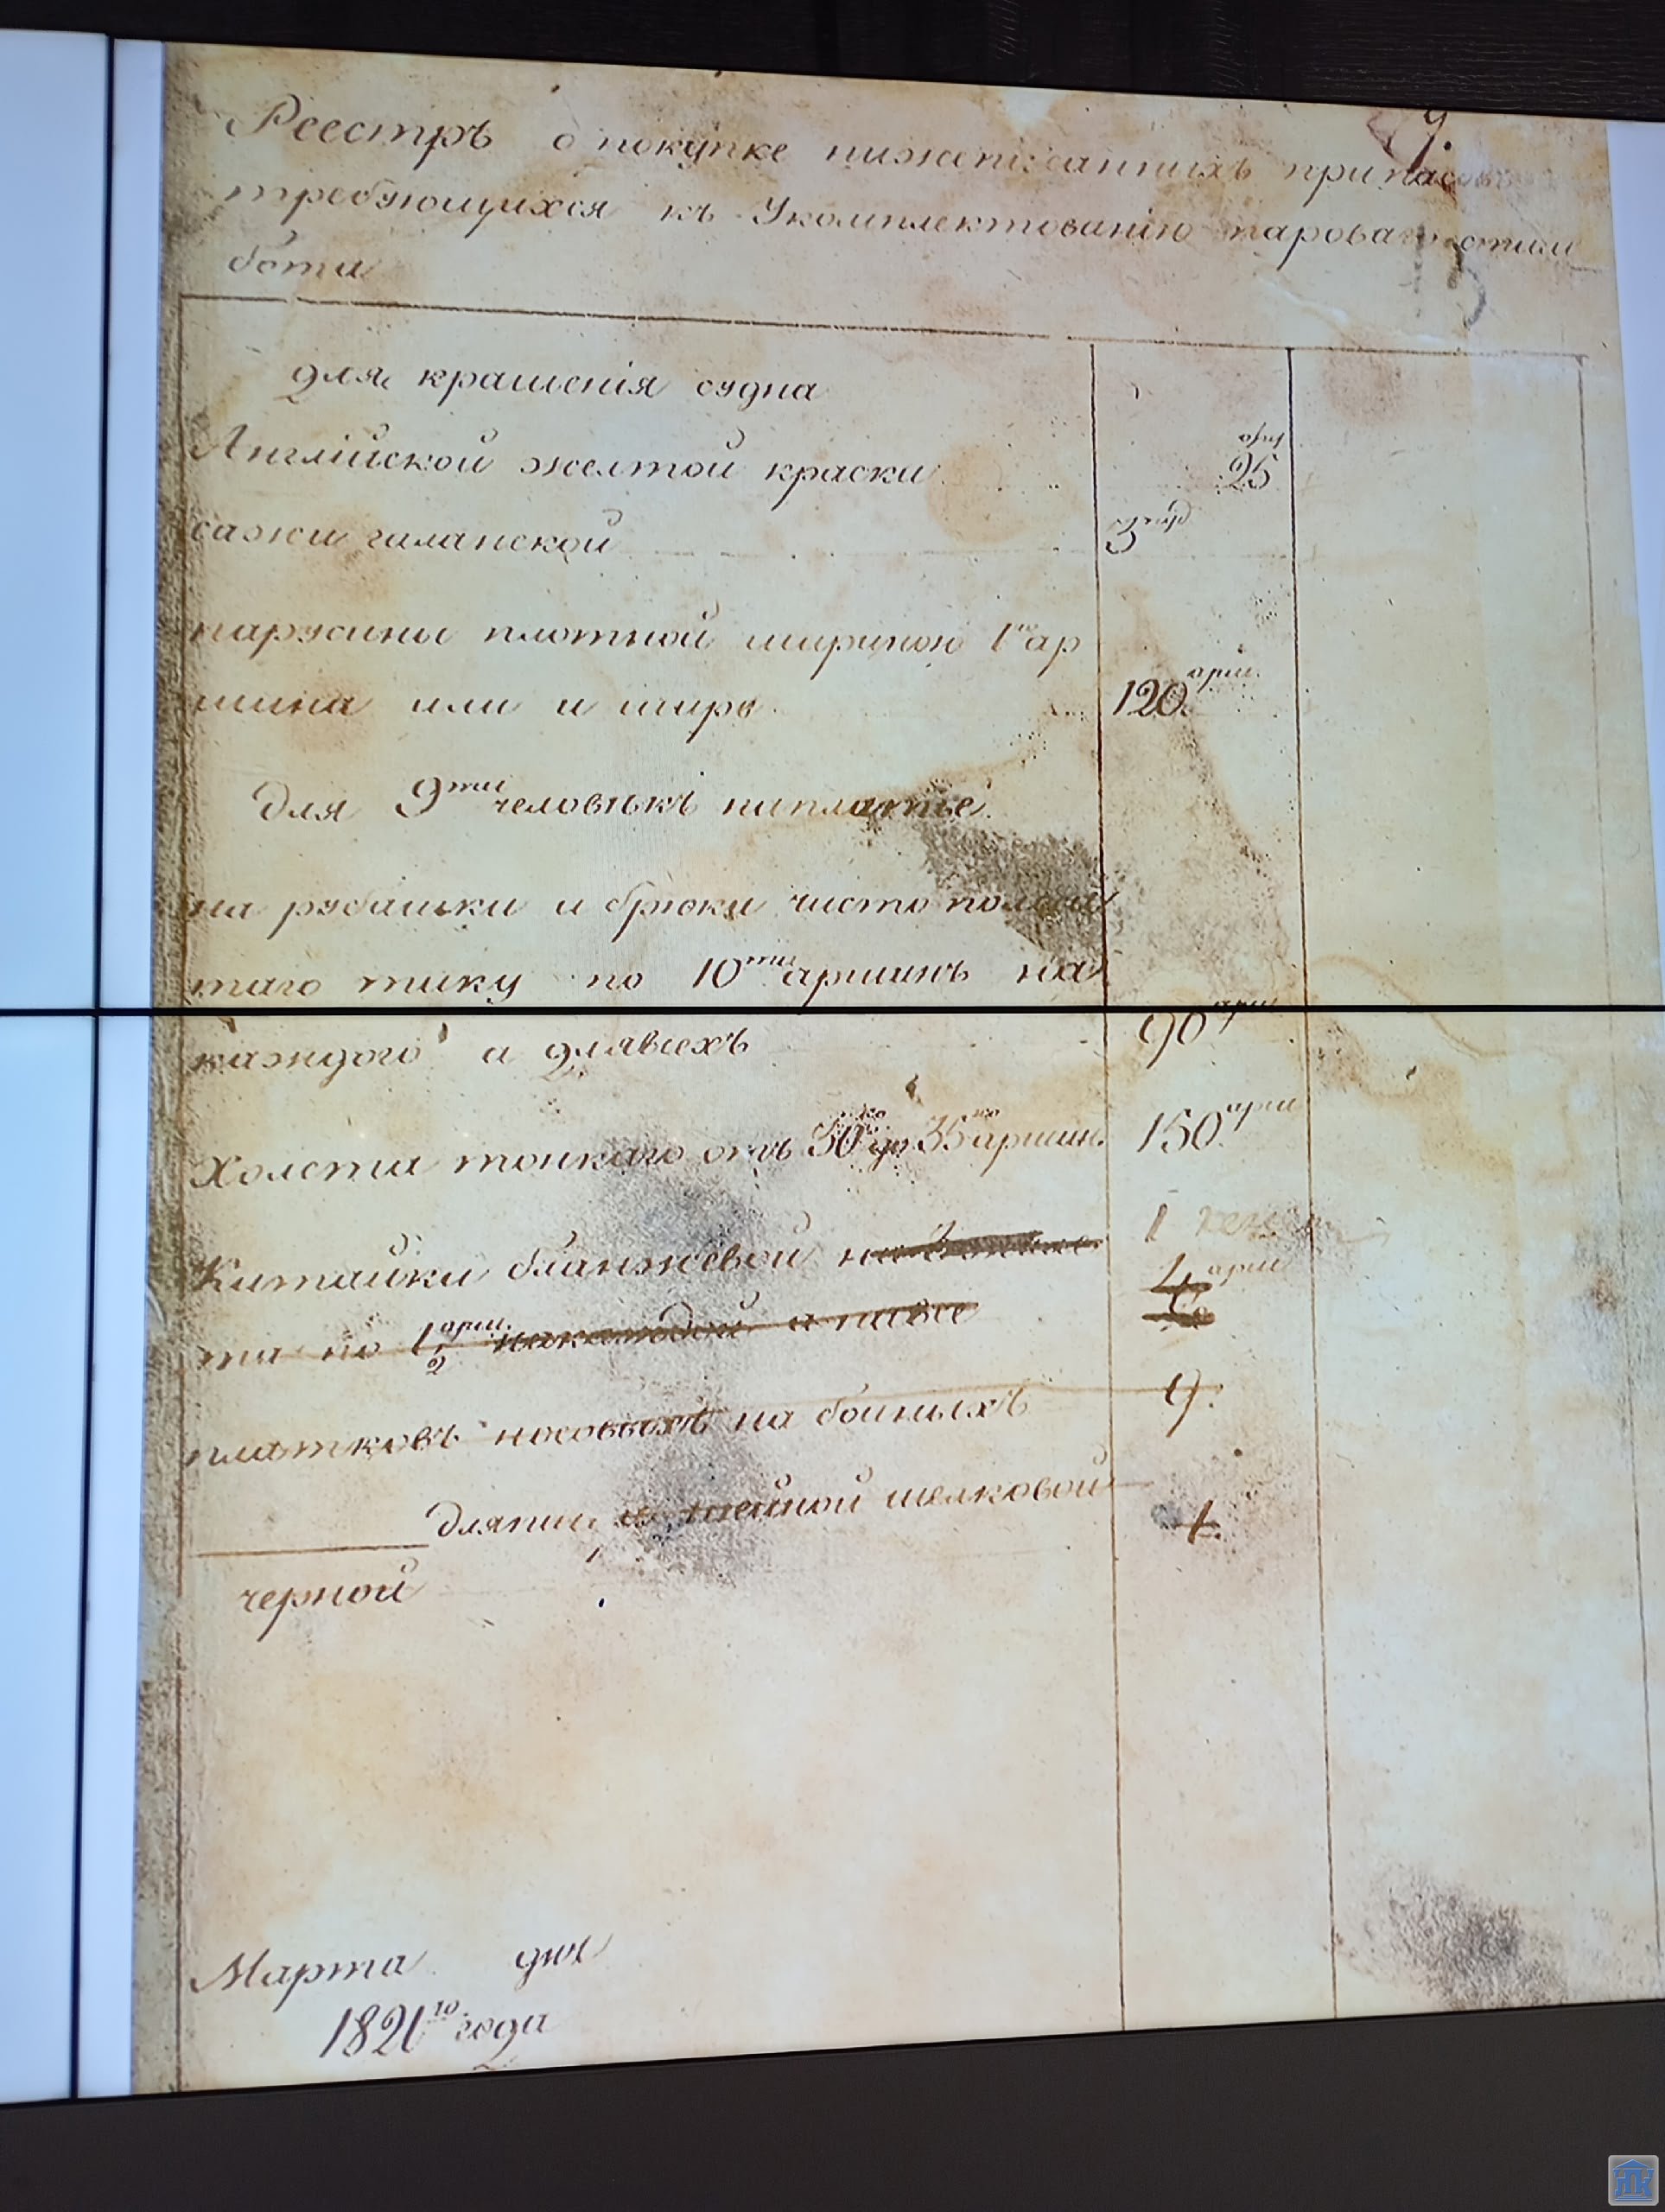 9.
Реестръ о покупке нижеписанныхъ припасовъ
требующихся къ Укомплектованію пароваго стим
бота
для крашенія судна
Англійской желтой краски 25
сажи галанской 3 пуд
парусины плотной шириною 1го ар
шина или и шире 120 арш.
для 9ти человѣкъ на платье.
на рубашки и брюки чисто
таго тику по 10ти аршинъ на
каждого а для всехъ 90 арш
Холста тонкаго отъ 30 до 35 аршин. 150 арш
Китайки бланжевой 1
4 арш
та по 1 1/2 арш. на каждой а на все
платковъ носовыхъ на бойныхъ 9.
для шейной шелковой 1.
черной
Марта дня
1821го года